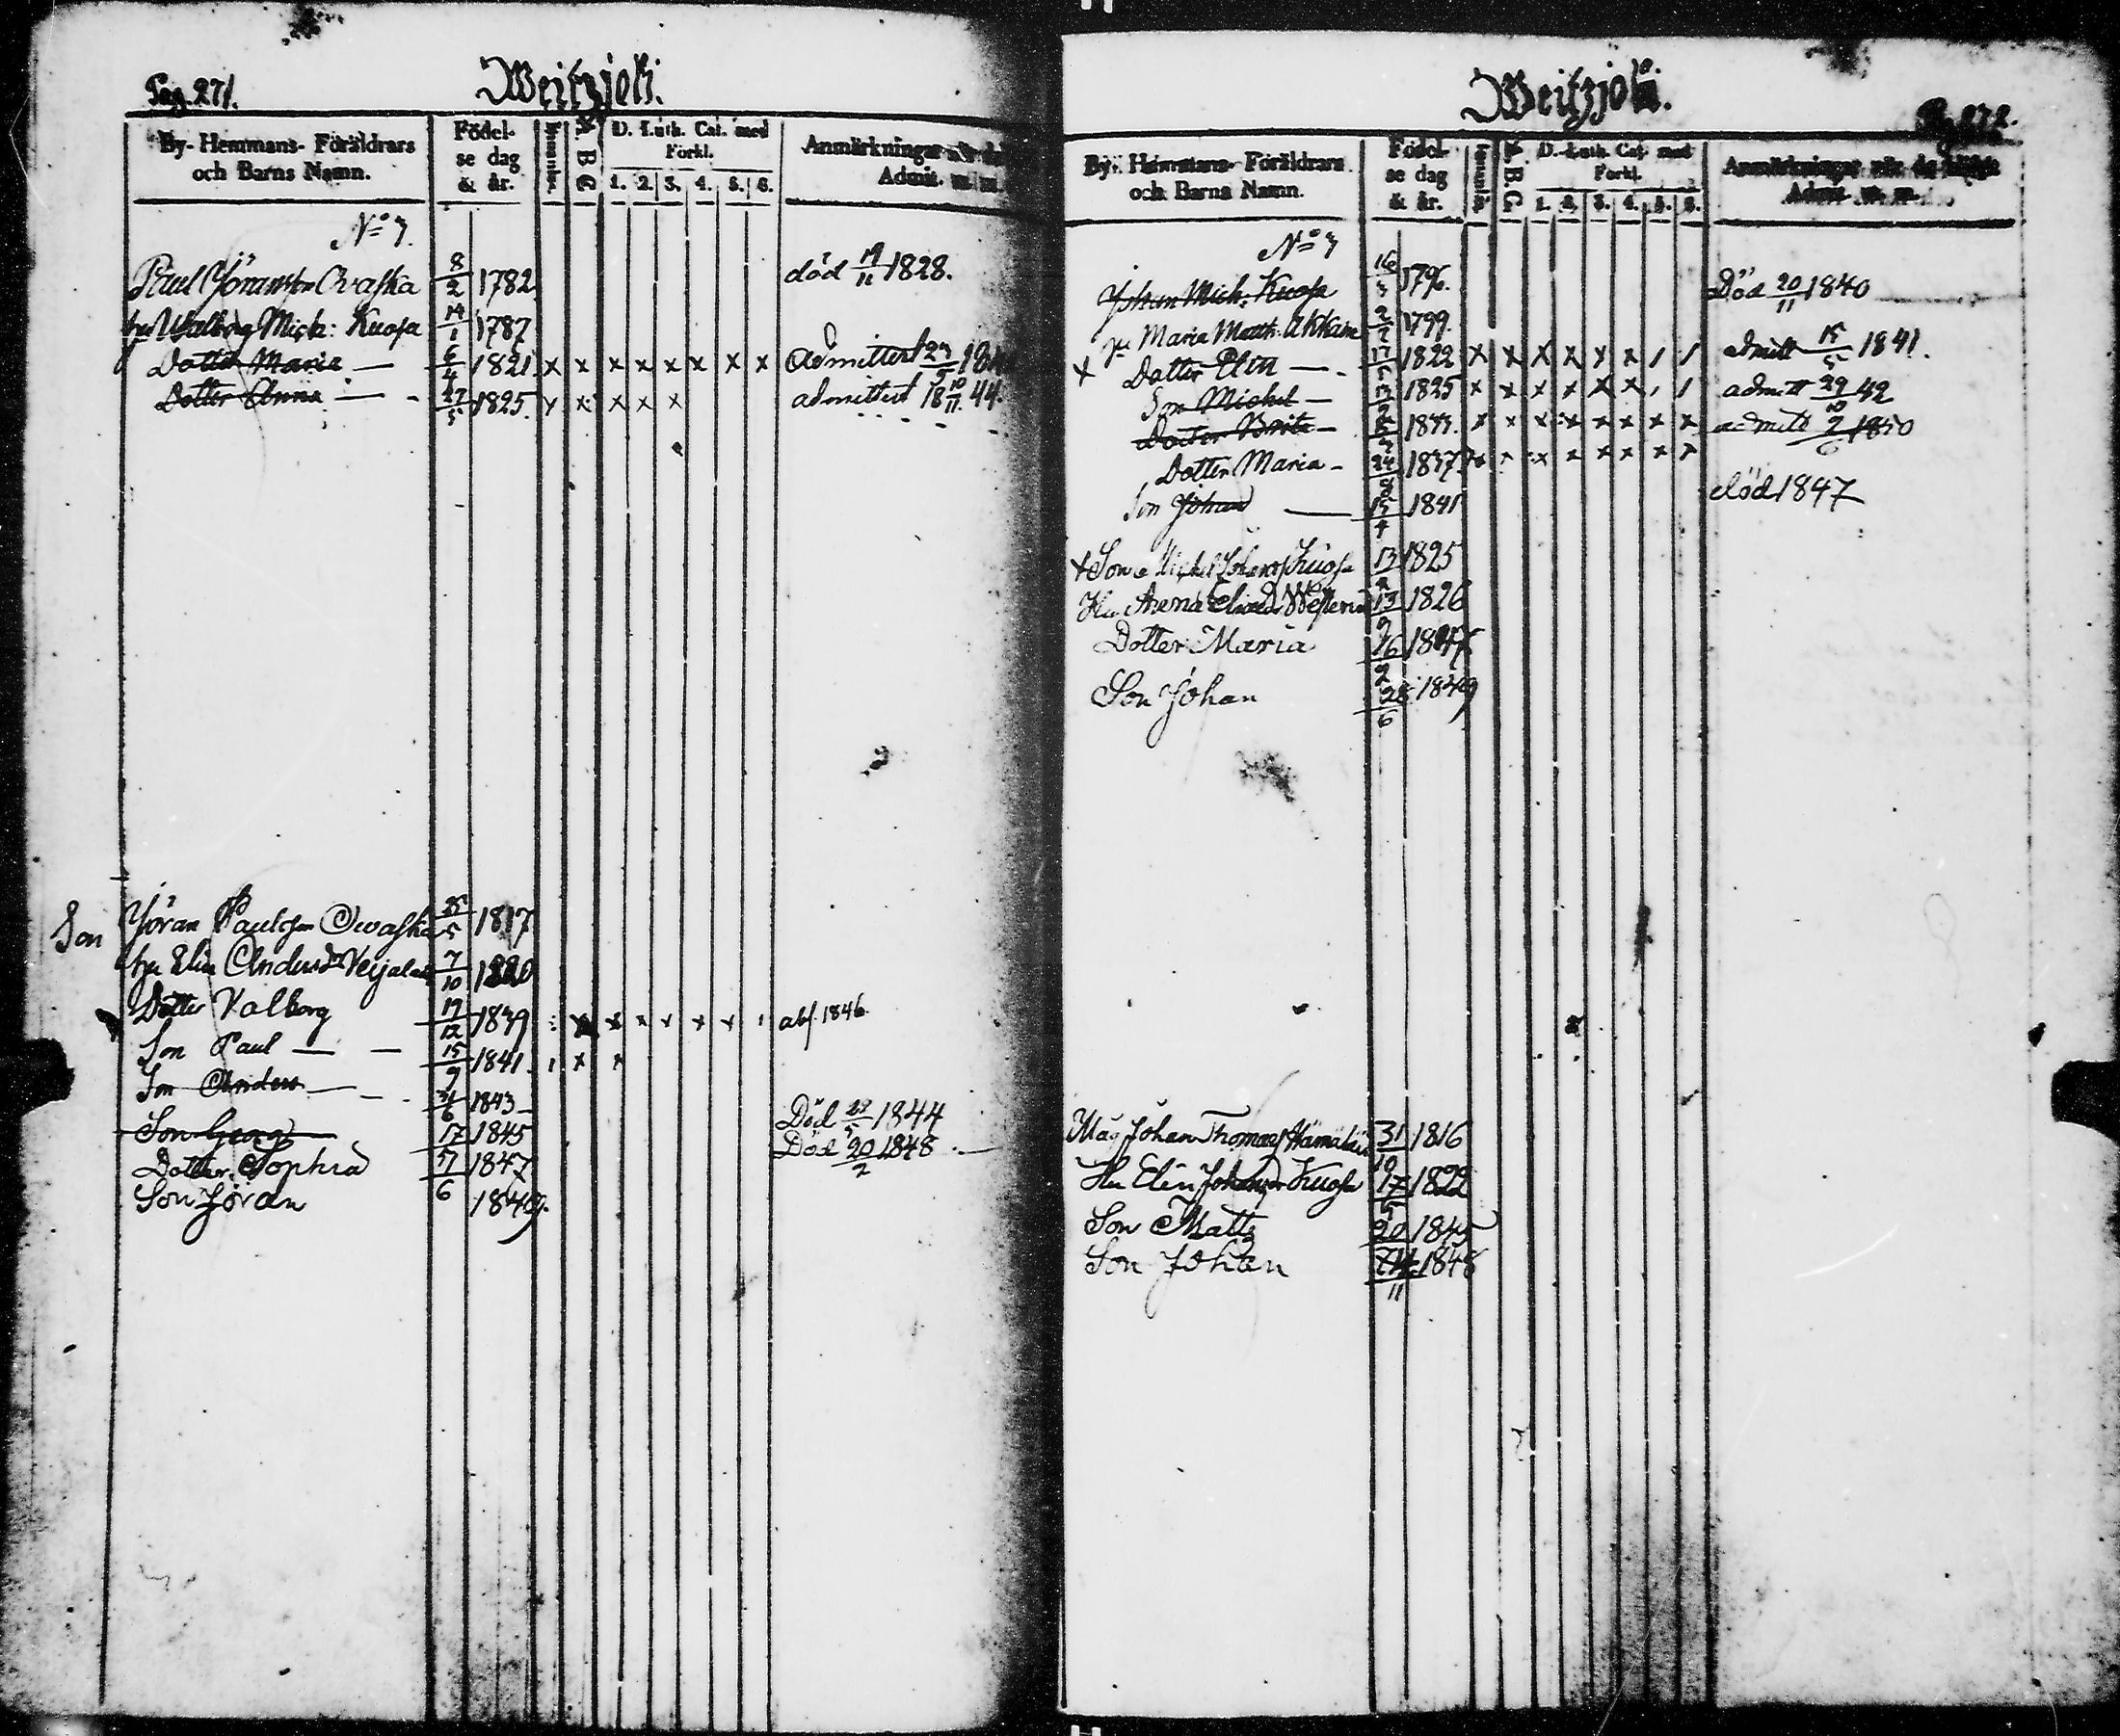 Pag. 271.
Weitzjoki.
By- Hemmans- Föräldrars
och Barns Namn.
Födel-
se dag
& år.
A. B. C.
D. Luth. Cat. med
Förkl.
1. 2. 3. 4. 5. 6.
Anmärkningar
Admit. m. m.
No 7.
Paul Göransson Ovaska 8/2 1782 död 19/11 1828.
hu Walborg Mich: Kuosa 14/1 1787
Dotter Maria — 6/4 1821 x x x x x x x x Admitterat
Dotter Anna — 27/5 1825. x x x x x admitterat 18 10/11 44.
Son Jöran Paulsson Owaska 25/5 1817
hu Elin Andersdr Veijalain 7/10 1820
Dotter Valborg 19/12 1839 x x x x x x abs. 1846.
Son Paul — — 15/9 1841
Son Anders — 1843
Son Georg 17 1845 Död 1844
Dotter Sophia 17/6 1847 Död 20/2 1848
Son Jöran 1849.
Weitzjoki.
Pag. 272.
By- Hemmans- Föräldrars
och Barns Namn.
Födel-
se dag
& år.
A. B. C.
D. Luth. Cat. med
Förkl.
1. 2. 3. 4. 5. 6.
Anmärkningar när de
Admit. m. m.
No 7
Johan Mich: Kuosa 16/3 1796. Död 20/11 1840
hu Maria Matth. Akkain 2/2 1799.
x Dotter Elin — 17/5 1822 x x x x x x / / admitt 15/5 1841.
Son Michel — 13 1825 x x x x x x / / admitt 29/10 42
Dotter Brita — x x x x x x x x admitt 1850
Dotter Maria - 24 1837
Son Johan — 15/4 1841 död 1847
x Son Michel Johanss Kuosa 13 1825
Hu Anna 13/9 1826
Dotter Maria 16 1847
Son Johan 28/6 1849
Måg Johan Thomass Hämäläin 31/10 1816
Hu Elin Johansdr Kuosa 17/5 1822
Son Matts 20 1845
Son Johan 24/11 1848